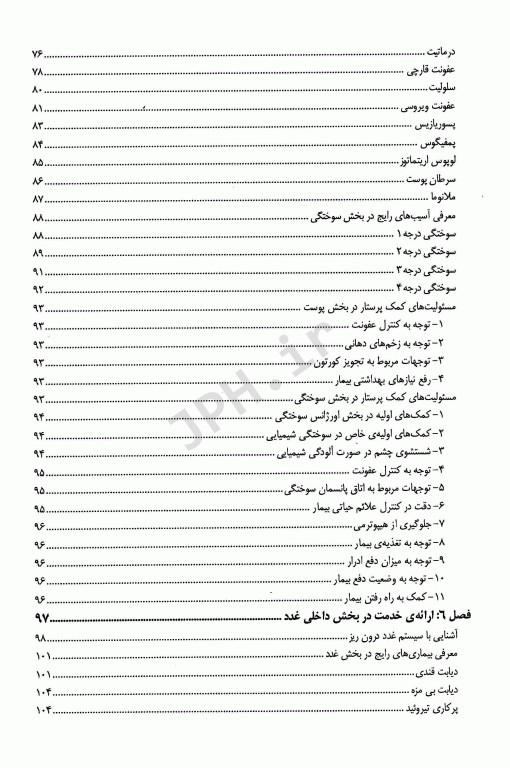 درماتیت ۷۶
عفونت قارچی ۷۸
سلولیت ۸۰
عفونت ویروسی ۸۱
پسوریازیس ۸۳
پمفیگوس ۸۴
لوپوس اریتماتوز ۸۵
سرطان پوست ۸۶
ملانوما ۸۷
معرفی آسیب‌های رایج در بخش سوختگی ۸۸
سوختگی درجه ۱ ۸۸
سوختگی درجه ۲ ۸۹
سوختگی درجه ۳ ۹۱
سوختگی درجه ۴ ۹۲
مسئولیت‌های کمک پرستار در بخش پوست ۹۳
۱- توجه به کنترل عفونت ۹۳
۲- توجه به زخم‌های دهانی ۹۳
۳- توجهات مربوط به تجویز کورتون ۹۳
۴- رفع نیازهای بهداشتی بیمار ۹۳
مسئولیت‌های کمک پرستار در بخش سوختگی ۹۳
۱- کمک‌های اولیه در بخش اورژانس سوختگی ۹۴
۲- کمک‌های اولیه‌ی خاص در سوختگی شیمیایی ۹۴
۳- شستشوی چشم در صورت آلودگی شیمیایی ۹۴
۴- توجه به کنترل عفونت ۹۵
۵- توجهات مربوط به اتاق پانسمان سوختگی ۹۵
۶- دقت در کنترل علائم حیاتی بیمار ۹۵
۷- جلوگیری از هیپوترمی ۹۶
۸- توجه به تغذیه‌ی بیمار ۹۶
۹- توجه به میزان دفع ادرار ۹۶
۱۰- توجه به وضعیت دفع بیمار ۹۶
۱۱- کمک به راه رفتن بیمار ۹۶
فصل ۶: ارائه‌ی خدمت در بخش داخلی غدد ۹۷
آشنایی با سیستم غدد درون ریز ۹۸
معرفی بیماری‌های رایج در بخش غدد ۱۰۱
دیابت قندی ۱۰۱
دیابت بی مزه ۱۰۴
پرکاری تیروئید ۱۰۴
JPH.ir